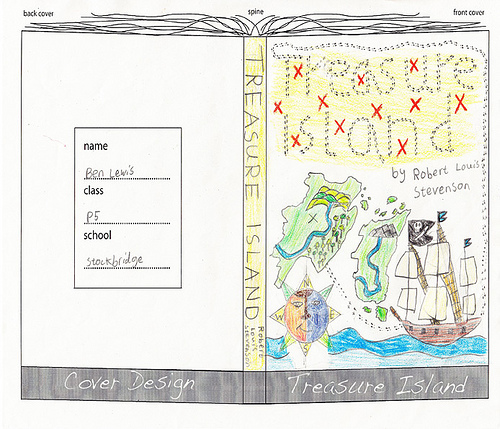 back cover
spine
front cover
name
Ben Lewis
class
P5
school
Stockbridge
Cover Design
TREASURE ISLAND
Robert
Louis
Stevenson
Treasure
Island
by Robert Louis
Stevenson
Treasure Island